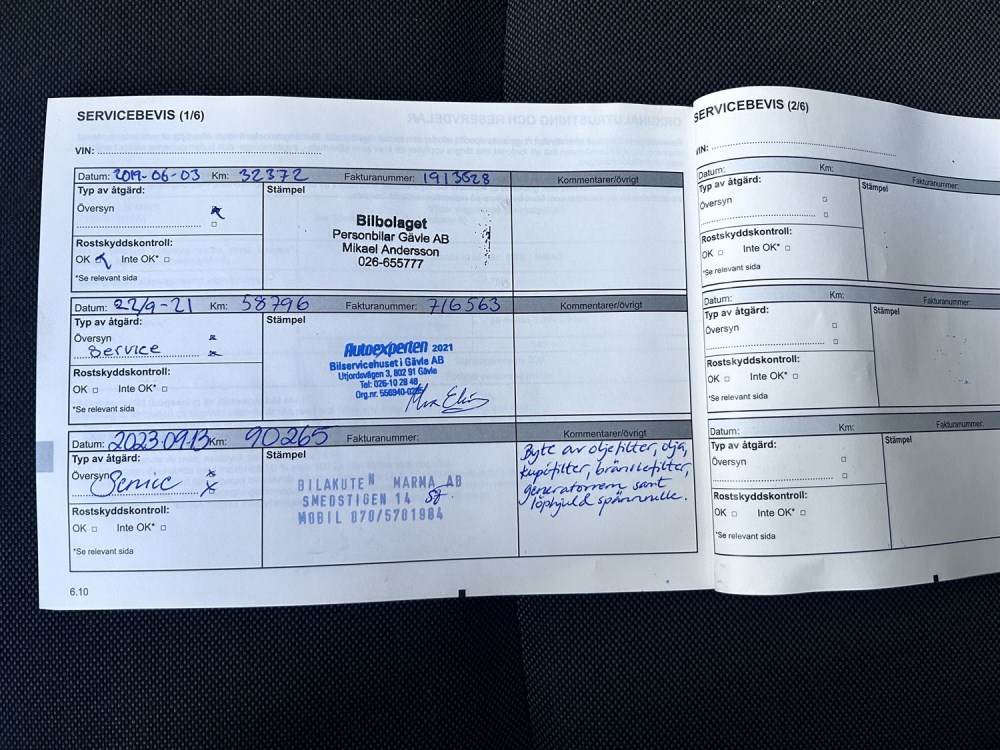 SERVICEBEVIS (1/6)
VIN:
Datum: 2019-06-03 Km: 32372 Fakturanummer: 1913628 Kommentarer/övrigt
Typ av åtgärd: Stämpel
Översyn
Bilbolaget
Personbilar Gävle AB
Mikael Andersson
026-655777
Rostskyddskontroll:
OK Inte OK*
*Se relevant sida
Datum: 22/9-21 Km: 58796 Fakturanummer: 716563 Kommentarer/övrigt
Typ av åtgärd: Stämpel
Översyn
Service
Autoexperten 2021
Bilservicehuset i Gävle AB
Utjordsvägen 3, 802 91 Gävle
Tel: 026-10 28 48
Org.nr. 556940-0265
Rostskyddskontroll:
OK Inte OK*
*Se relevant sida
Datum: 2023.09.13 Km: 90265 Fakturanummer: Kommentarer/övrigt
Typ av åtgärd: Stämpel
Översyn
Service
BILAKUTEN MARMA AB
SMEDSTIGEN 14
MOBIL 070/5701984
Byte av oljefilter, olja,
kupéfilter, bränslefilter,
generatorrem samt
löphjul & spännrulle.
Rostskyddskontroll:
OK Inte OK*
*Se relevant sida
6.10
SERVICEBEVIS (2/6)
VIN:
Datum: Km: Fakturanummer:
Typ av åtgärd: Stämpel
Översyn
Rostskyddskontroll:
OK Inte OK*
*Se relevant sida
Datum: Km: Fakturanummer:
Typ av åtgärd: Stämpel
Översyn
Rostskyddskontroll:
OK Inte OK*
*Se relevant sida
Datum: Km: Fakturanummer:
Typ av åtgärd: Stämpel
Översyn
Rostskyddskontroll:
OK Inte OK*
*Se relevant sida